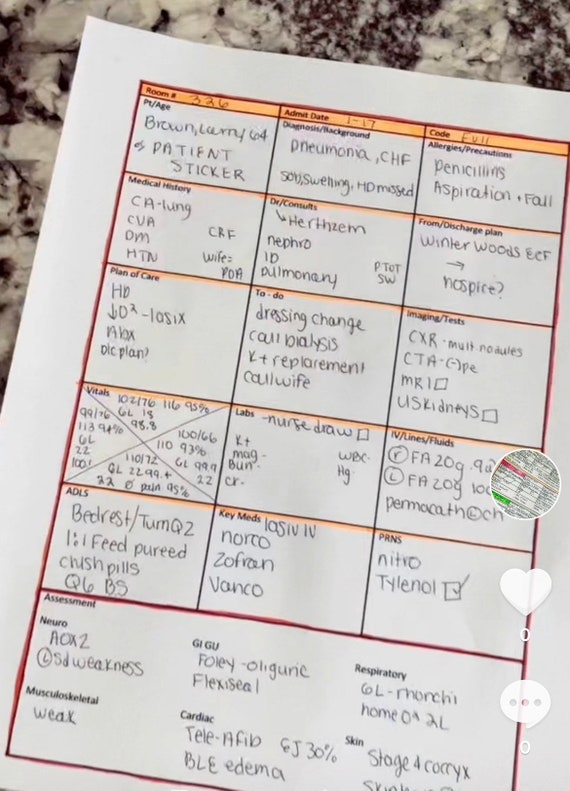 Room # 326
Pt/Age
Brown, Larry 64
♂ PATIENT
STICKER
Admit Date 1-17
Diagnosis/Background
pneumonia, CHF
SOB, Swelling, HD missed
Code Full
Allergies/Precautions
penicillins
Aspiration + Fall
Medical History
CA-lung
CVA
DM CRF
HTN wife=
POA
Dr/Consults
↳ Herthzem
nephro
ID
pulmonary PTOT
SW
From/Discharge plan
Winter Woods ECF
→
hospice?
Plan of Care
HD
↓O2-lasix
Abx
D/c plan?
To - do
dressing change
call Dialysis
K+ replacement
call wife
Imaging/Tests
CXR-mult nodules
CTA-(-)pe
MRI □
US Kidneys □
Vitals
102/76 116 95%
6L 18
98.8
99/76
113 94%
6L
22
100.1
100/66
110 93%
6L 99.9
22
110/72
6L 22 99.4
22 0 pain 95%
Labs -nurse draw □
K+
mag- WBC-
Bun- Hg-
cr-
IV/Lines/Fluids
(r) FA 20g
(L) FA 20g
permacath (L) ch
ADLS
Bedrest/Turn Q2
1:1 Feed pureed
crush pills
Q6 BS
Key Meds lasix IV
norco
Zofran
Vanco
PRNS
nitro
Tylenol ☑
Assessment
Neuro
AOx2
(L) Sd weakness
GI GU
Foley-oliguric
Flexiseal
Respiratory
6L-rhonchi
home O2 2L
Musculoskeletal
weak
Cardiac
Tele-Afib EJ 30%
BLE edema
Skin
Stage 4 coccyx
0
0